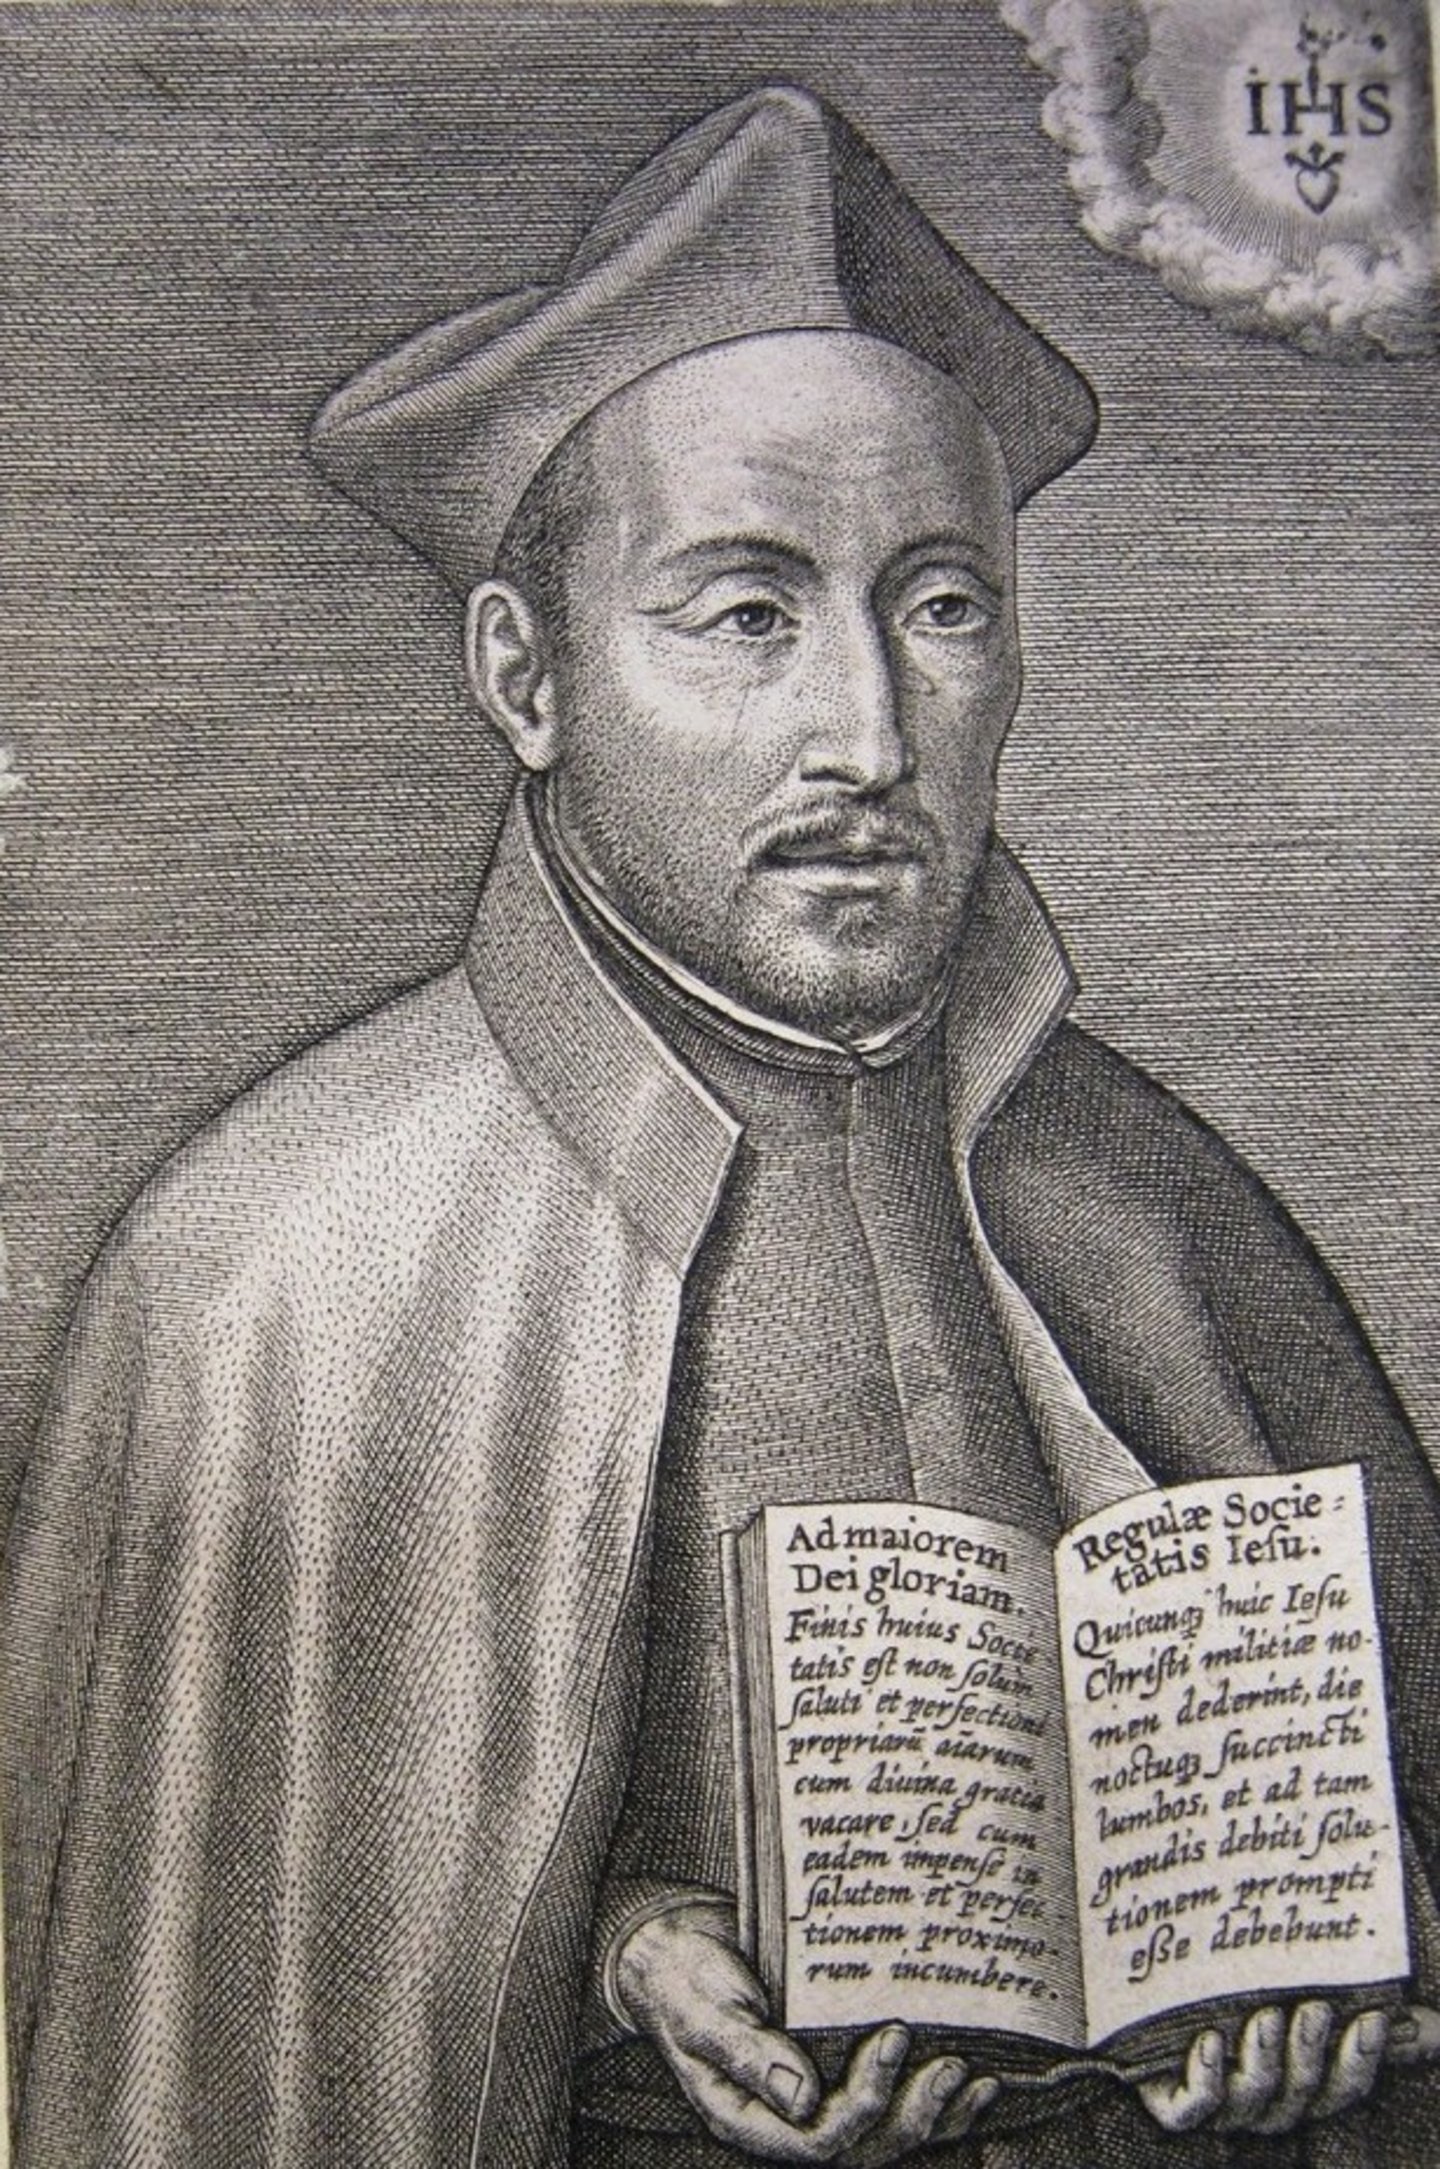 iHS
Ad maiorem
Dei gloriam.
Finis huius Socie
tatis est non solum
saluti et perfectioni
propriarū aīarum
cum diuina gratia
vacare, sed cum
eadem impense in
salutem et perfec-
tionem proximo-
rum incumbere.
Regulæ Socie=
tatis Iesu.
Quicunqꝫ huic Iesu
Christi militiæ no-
men dederint, die
noctuqꝫ succincti
lumbos, et ad tam
grandis debiti solu-
tionem prompti
esse debebunt.